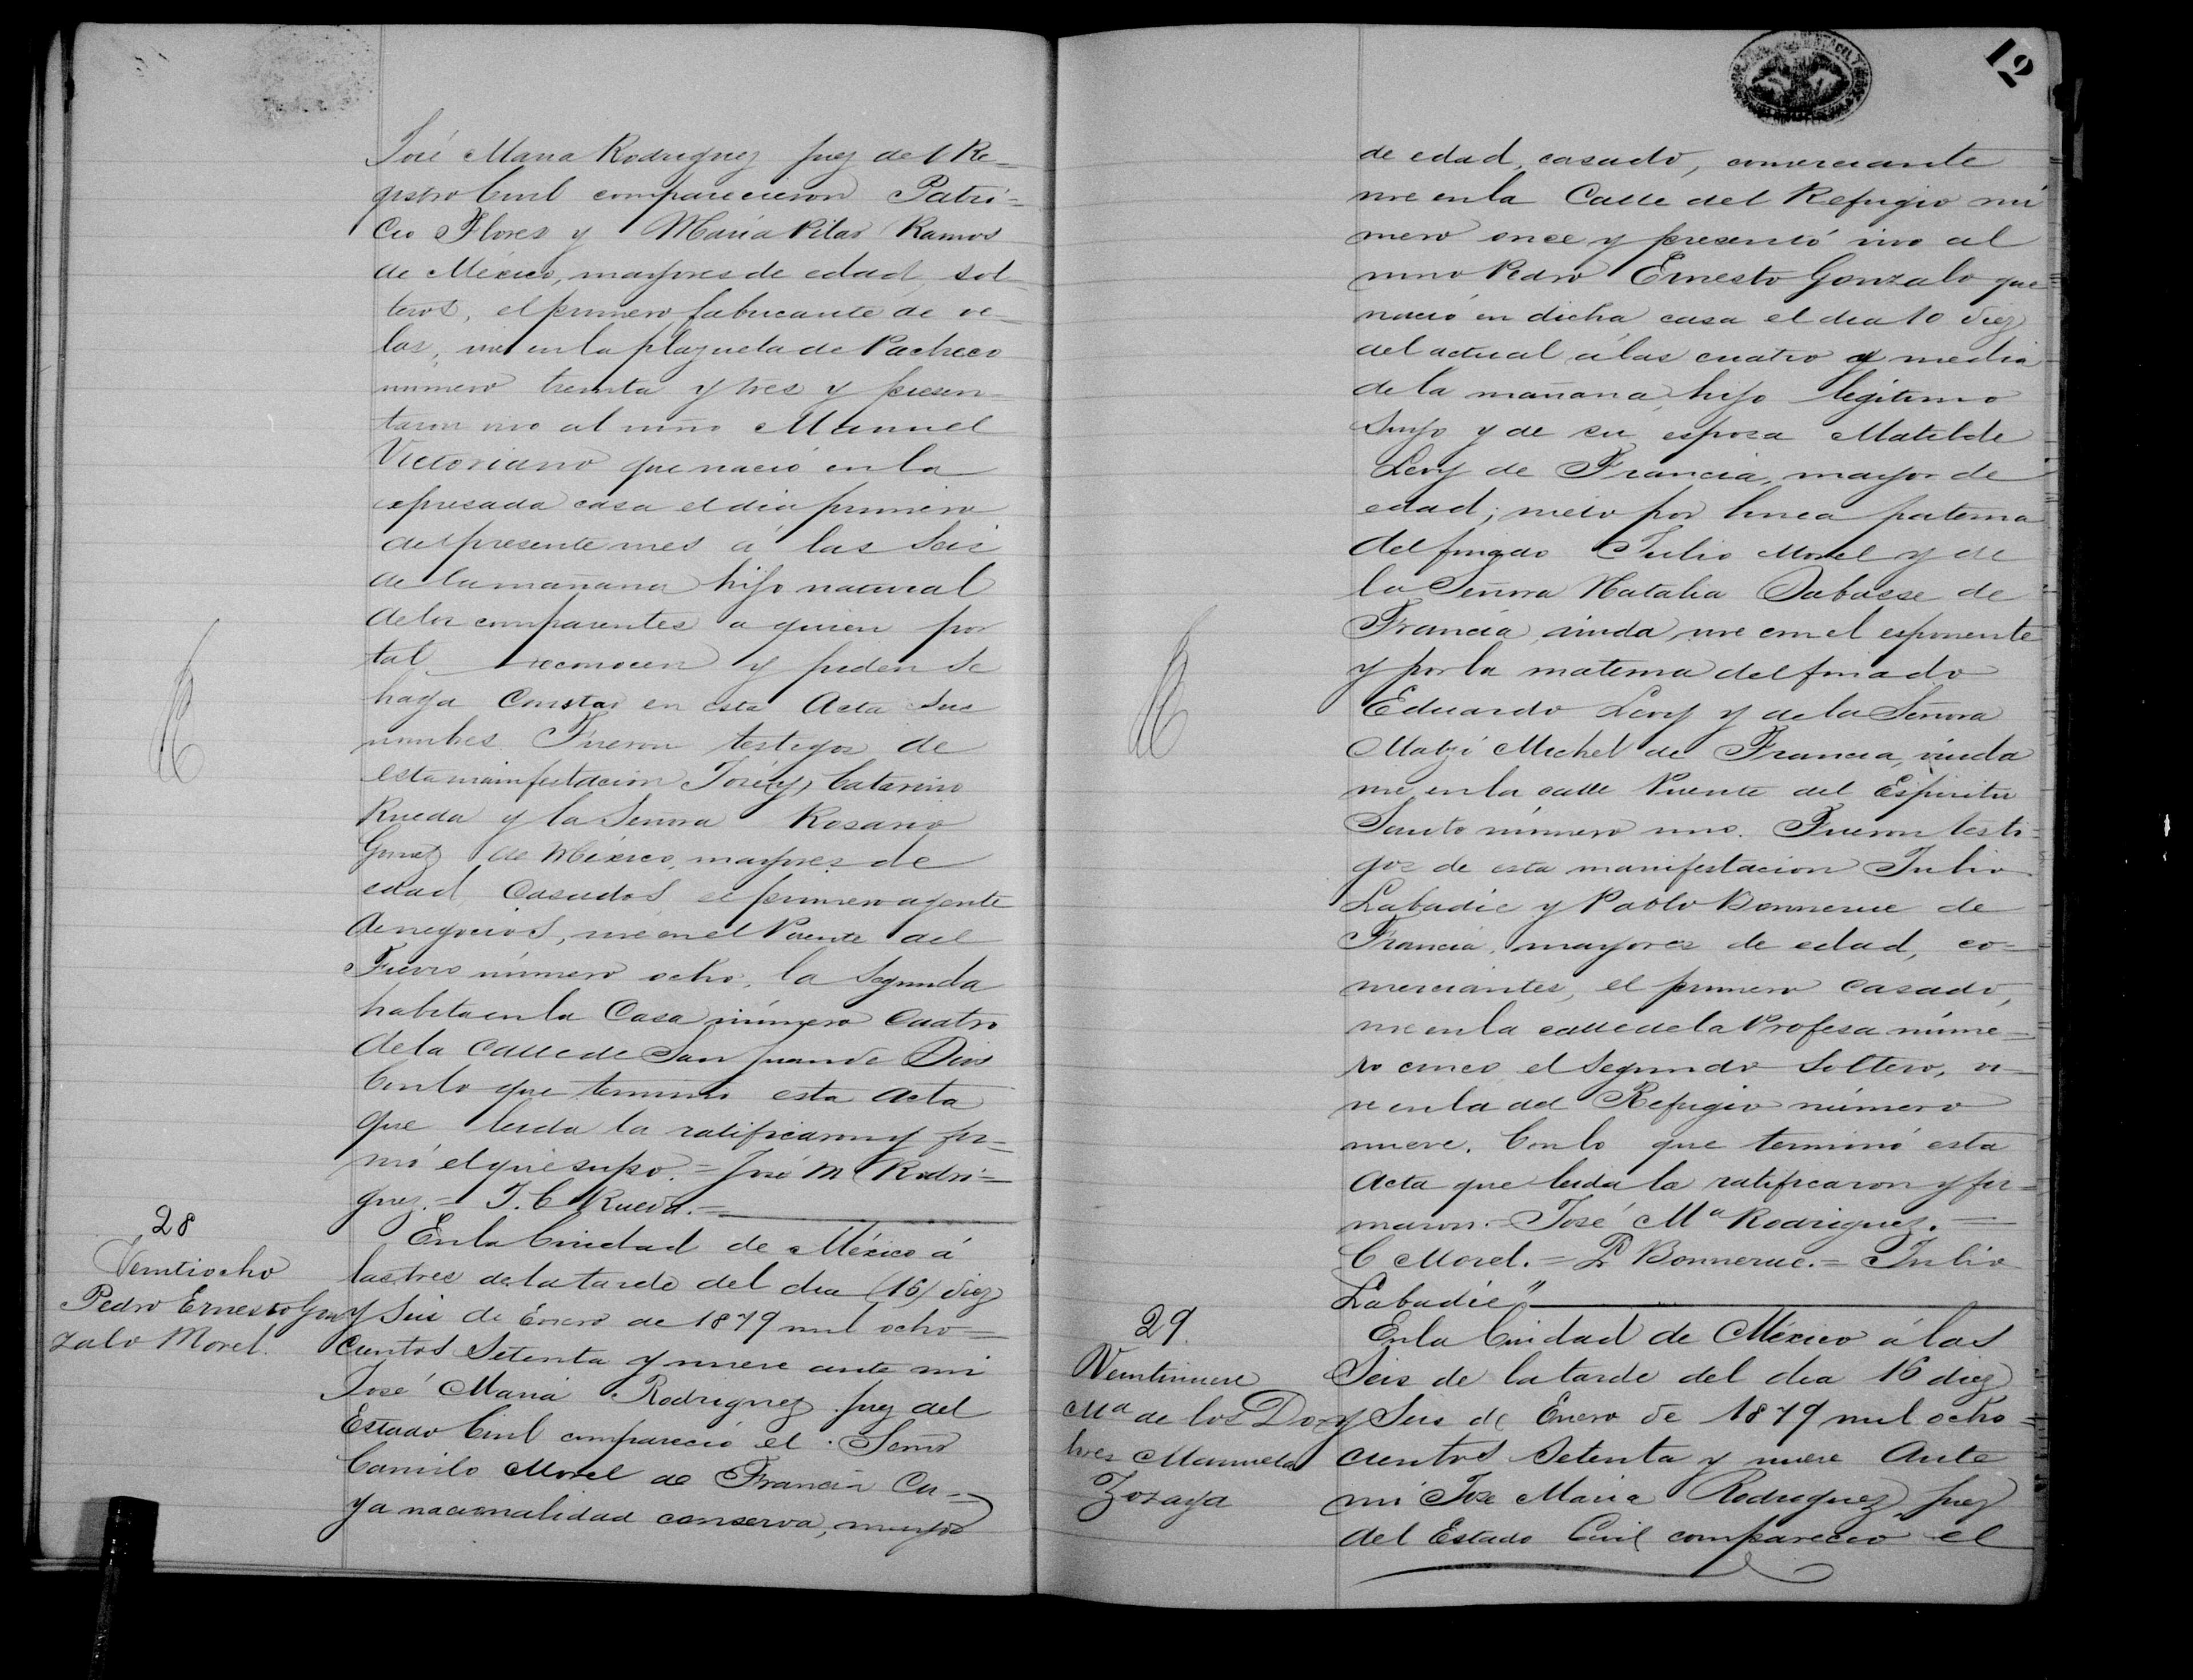 José Maria Rodriguez juez del Re-
gistro Civil comparecieron Patri-
cio Flores y Maria Pilar Ramos
de México, mayores de edad, sol-
teros, el primero fabricante de ve-
las, vive en la plazuela de Pacheco
número treinta y tres y presen-
taron vivo al niño Manuel
Victoriano que nació en la
espresada casa el dia primero
del presente mes á las Seis
de la mañana hijo natural
de los comparentes a quien por
tal reconocen y piden se
haga Constar en esta Acta sus
nombres. Fueron testigos de
esta manifestacion José y Catarino
Rueda y la Señora Rosario
Gomez de México, mayores de
edad, Casados, el primero agente
de negocios, vive en el Puente del
Fierro número ocho, la Segunda
habita en la Casa número Cuatro
de la Calle de San Juan de Dios
Con lo que terminó esta Acta
que leida la ratificaron y fir-
mó el que supo. = José M Rodri-
guez. = J. C Rueda. =
28
Veintiocho
Pedro Ernesto Gon
zalo Morel.
En la Ciudad de México á
las tres de la tarde del dia (16) diez
y Seis de Enero de 1879 mil ocho-
cientos Setenta y nueve ante mi
José Maria Rodriguez juez del
Estado Civil compareció el Señor
Camilo Morel de Francia Cu-
ya nacionalidad conserva, mayor
12
de edad, casado, comerciante
vive en la Calle del Refugio nú
mero once y presentó vivo al
niño Pedro Ernesto Gonzalo que
nació en dicha casa el dia 10 diez
del actual á las cuatro y media
de la mañana, hijo legitimo
Suyo y de su esposa Matilde
Levy de Francia, mayor de
edad; nieto por linea paterna
del finado Julio Morel y de
la Señora Natalia Dabasse de
Francia, viuda, vive con el esponente
y por la materna del finado
Eduardo Levy y de la Señora
Michel de Francia, viuda
vive en la calle Puente del Espiritu
Santo número uno. Fueron testi-
gos de esta manifestacion Julio
Labadie y Pablo Bonnerue de
Francia, mayores de edad, co-
merciantes, el primero Casado,
vive en la calle de la Profesa núme-
ro cinco, el Segundo Soltero, vi-
ve en la del Refugio número
nueve. Con lo que terminó esta
Acta que leida la ratificaron y fir-
maron. = José Ma Rodriguez. =
C Morel. = P Bonnerue. = Julio
Labadie"
29.
Veintinueve
Ma de los Do-
lores Manuela
Zozaya
En la Ciudad de México á las
Seis de la tarde del dia 16 diez
y Seis de Enero de 1879 mil ocho-
cientos Setenta y nueve Ante
mi Jose Maria Rodriguez juez
del Estado Civil compareció el